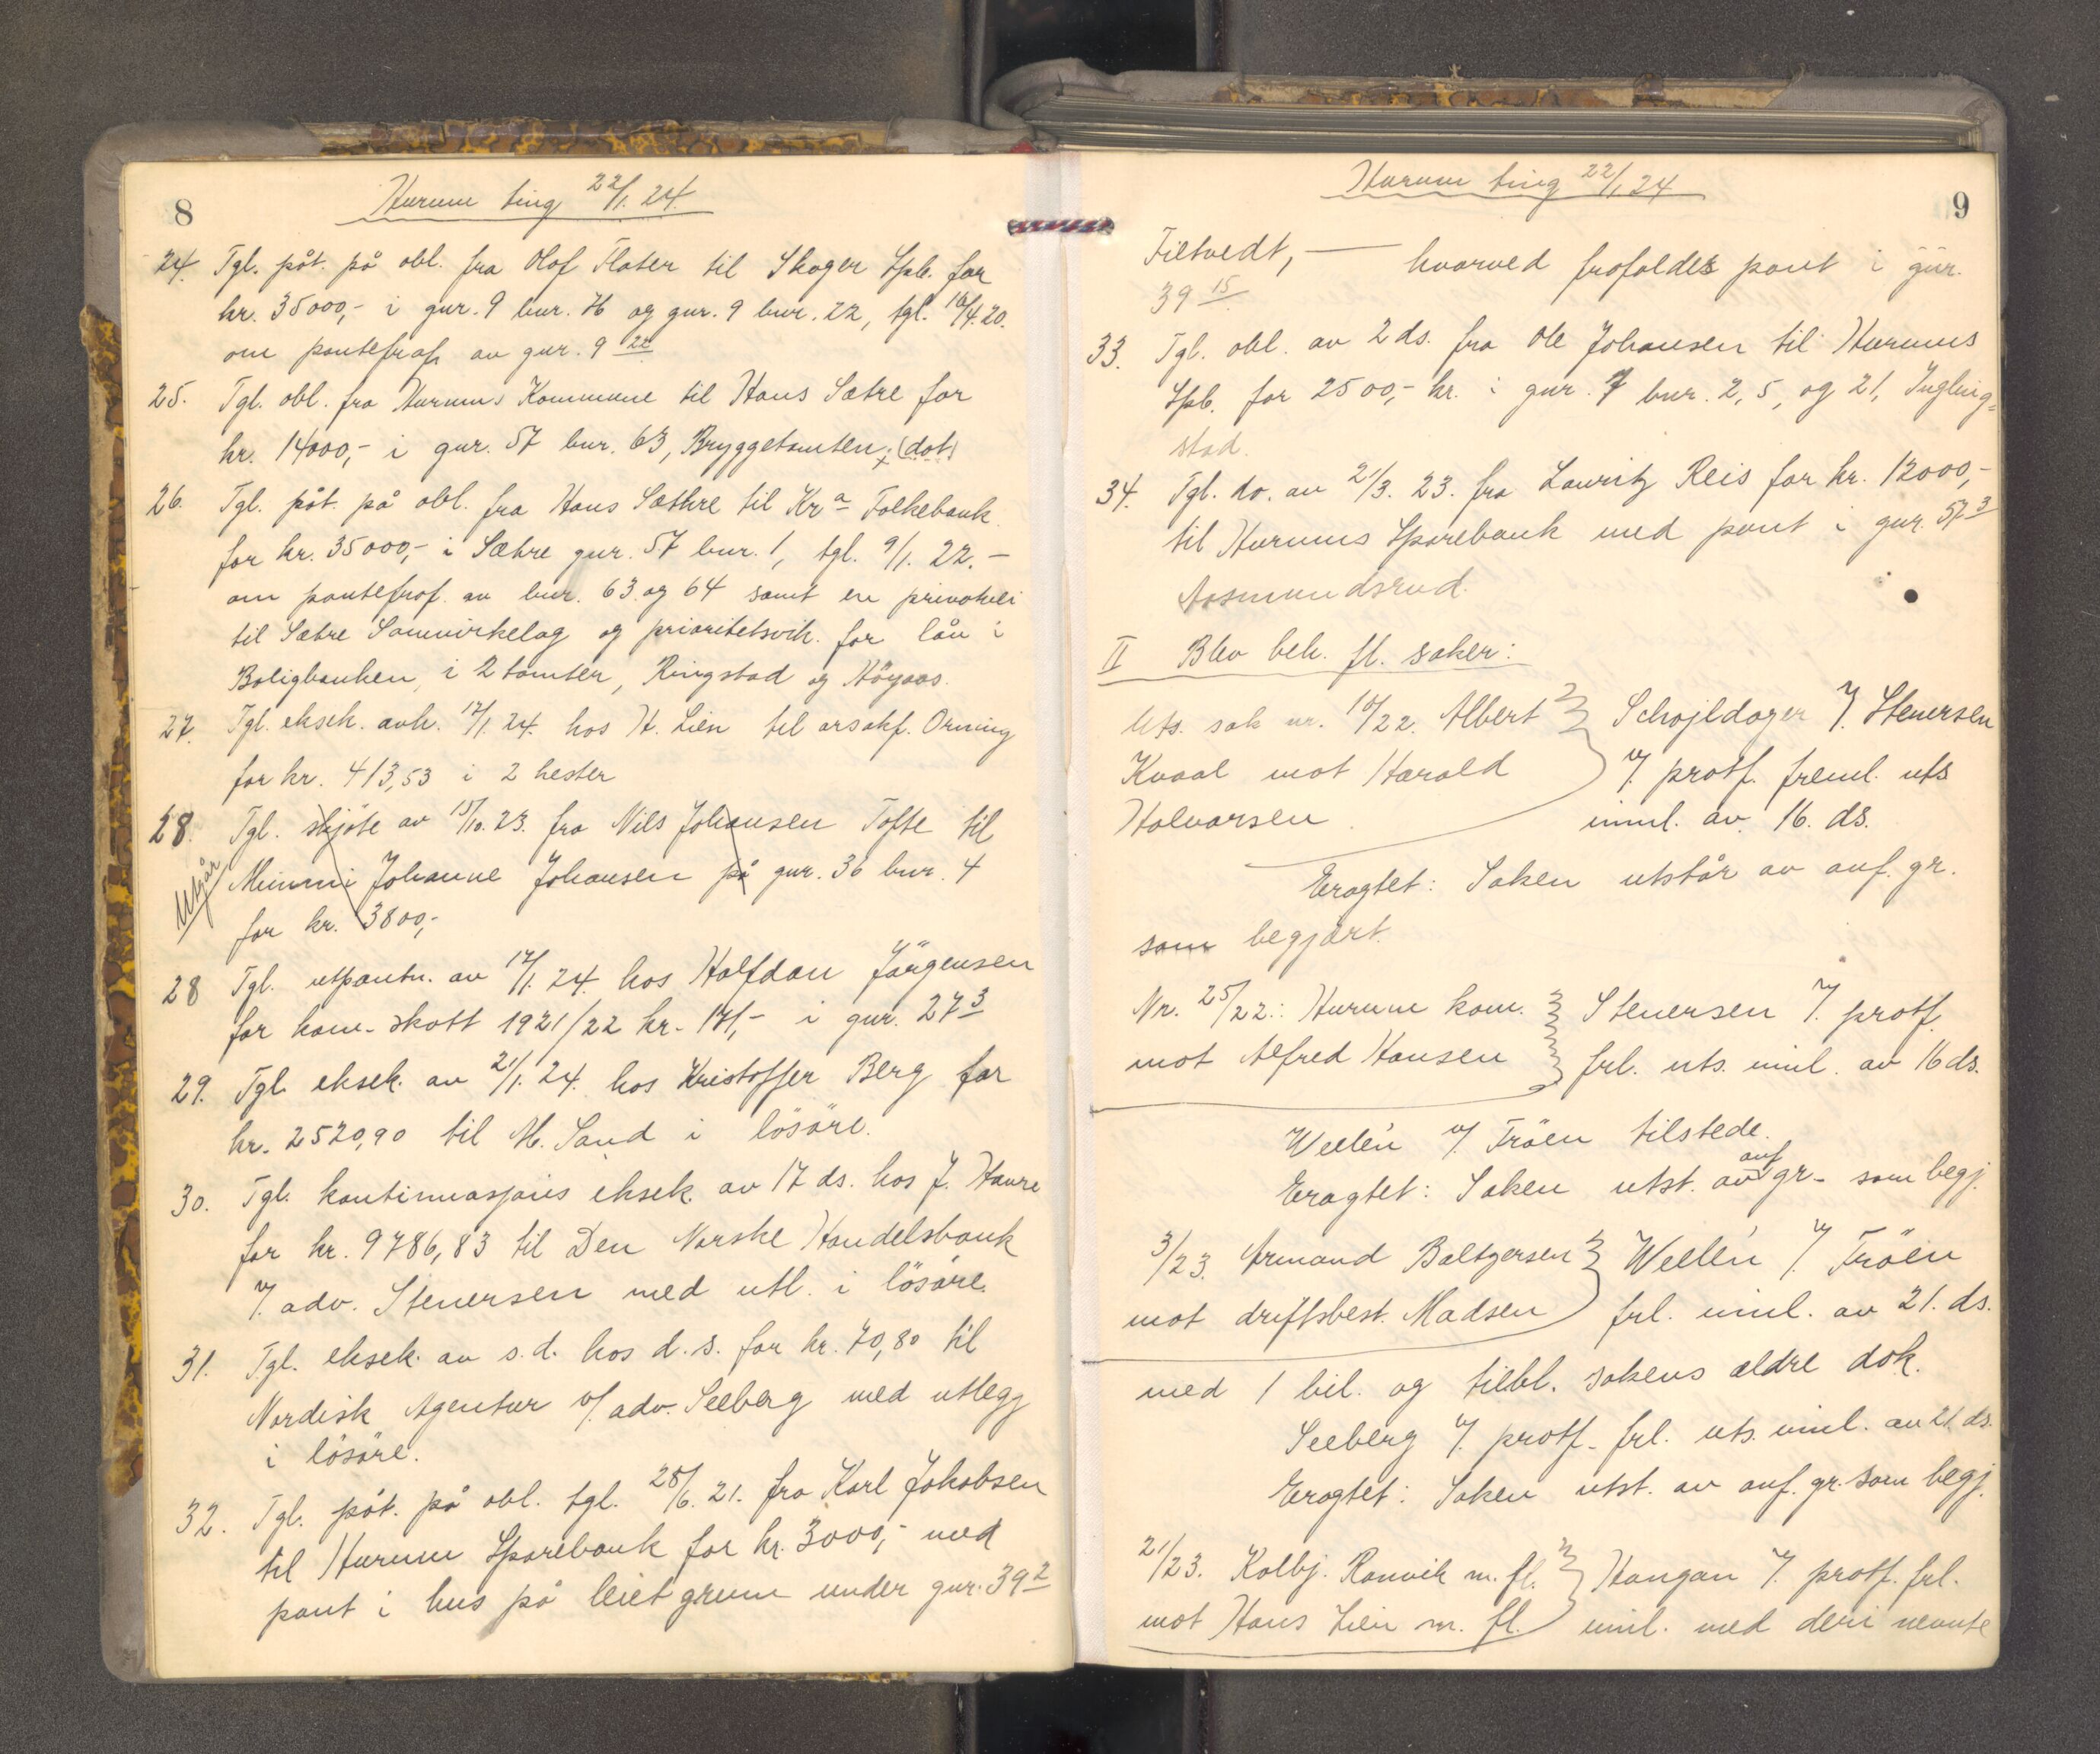 8
Hurum ting 22/1. 24.
24. Tgl. påt. på obl. fra Olof Flater til Skoger Spb. for
kr. 35000,- i gnr. 9 bnr. 16 og gnr. 9 bnr. 22, tgl. 16/4.20.
om pantefraf. av gnr. 9 22
25. Tgl. obl. fra Hurums Kommune til Hans Sætre for
kr. 14000,- i gnr. 57 bnr. 63, Bryggetomten, (dot)
26. Tgl. påt. på obl. fra Hans Sæthre til Kra Folkebank
for kr. 35000,- i Sætre gnr. 57 bnr. 1, tgl. 9/1. 22.-
om pantefraf. av bnr. 63 og 64 samt en privatvei
til Sætre Samvirkelag og prioritetsvik. for lån i
Boligbanken, i 2 tomter, Ringstad og Höyaas.
27. Tgl. eksek. avh. 17/1 24. hos H. Lien til orsakf. Orning
for kr. 413,53 i 2 hester
28. Tgl. skjöte av 15/10. 23. fra Nils Johansen Tofte til
Utgår Mimmi Johanne Johansen på gnr. 36 bnr. 4
for kr. 3800,-
28 Tgl. utpantn. av 17/1. 24. hos Halfdan Jörgensen
for kom. skatt 1921/22 kr. 171,- i gnr. 27 3
29. Tgl. eksek. av 21/1. 24. hos Kristoffer Berg for
kr. 2520,90 til M. Sand i lösöre.
30. Tgl. kontinuasjons eksek. av 17 ds. hos J. Haure
for kr. 9786,83 til Den Norske Handelsbank
v/. adv. Stenersen med utl. i lösöre.
31. Tgl. eksek. av s.d. hos d.s. for kr. 70,80 til
Nordisk Agentur v/. adv. Seeberg med utlegg
i lösöre.
32. Tgl. påt. på obl. tgl. 28/6. 21. fra Karl Jakobsen
til Hurum Sparebank for kr. 3000,- med
pant i hus på leiet grunn under gnr. 39 2
Hurum ting 22/1 24
9
Filtvedt, — hvorved frafaldes pant i gnr.
39 15
33. Tgl. obl. av 2 ds. fra Ole Johansen til Hurums
Spb. for 2500,- kr. i gnr. 7 bnr. 2, 5, og 21, Yngling-
stad.
34. Tgl. do. av 21/3. 23. fra Lauritz Reis for kr. 12000,-
til Hurums Sparebank med pant i gnr. 57 3
Aasmundsrud.
II Blev beh. fl. saker:
Uts. sak nr. 10/22. Albert } Schojldager v/. Stenersen
Kvaal mot Harald v/. protf. freml. uts
Halvorsen innl. av 16. ds.
Eragtet: Saken utstår av anf. gr.
som begjært.
Nr. 25/22.: Hurum kom. } Stenersen v/. protf.
mot Alfred Hansen frl. uts. innl. av 16 ds.
Wellén v/. Tröen tilstede.
Eragtet: Saken utst. av anf gr. som begj.
3/23. Armand Baltzersen } Wellén v/. Tröen
mot driftsbest. Madsen frl. innl. av 21. ds.
med 1 bil. og tilbl. sakens ældre dok.
Seeberg v/. protf. frl. uts. innl. av 21. ds.
Eragtet: Saken utst. av anf. gr. som begj.
21/23. Kolbj. Ranvik m. fl. } Hangan v/. protf. frl.
mot Hans Lien m. fl. innl. med deri nevnte